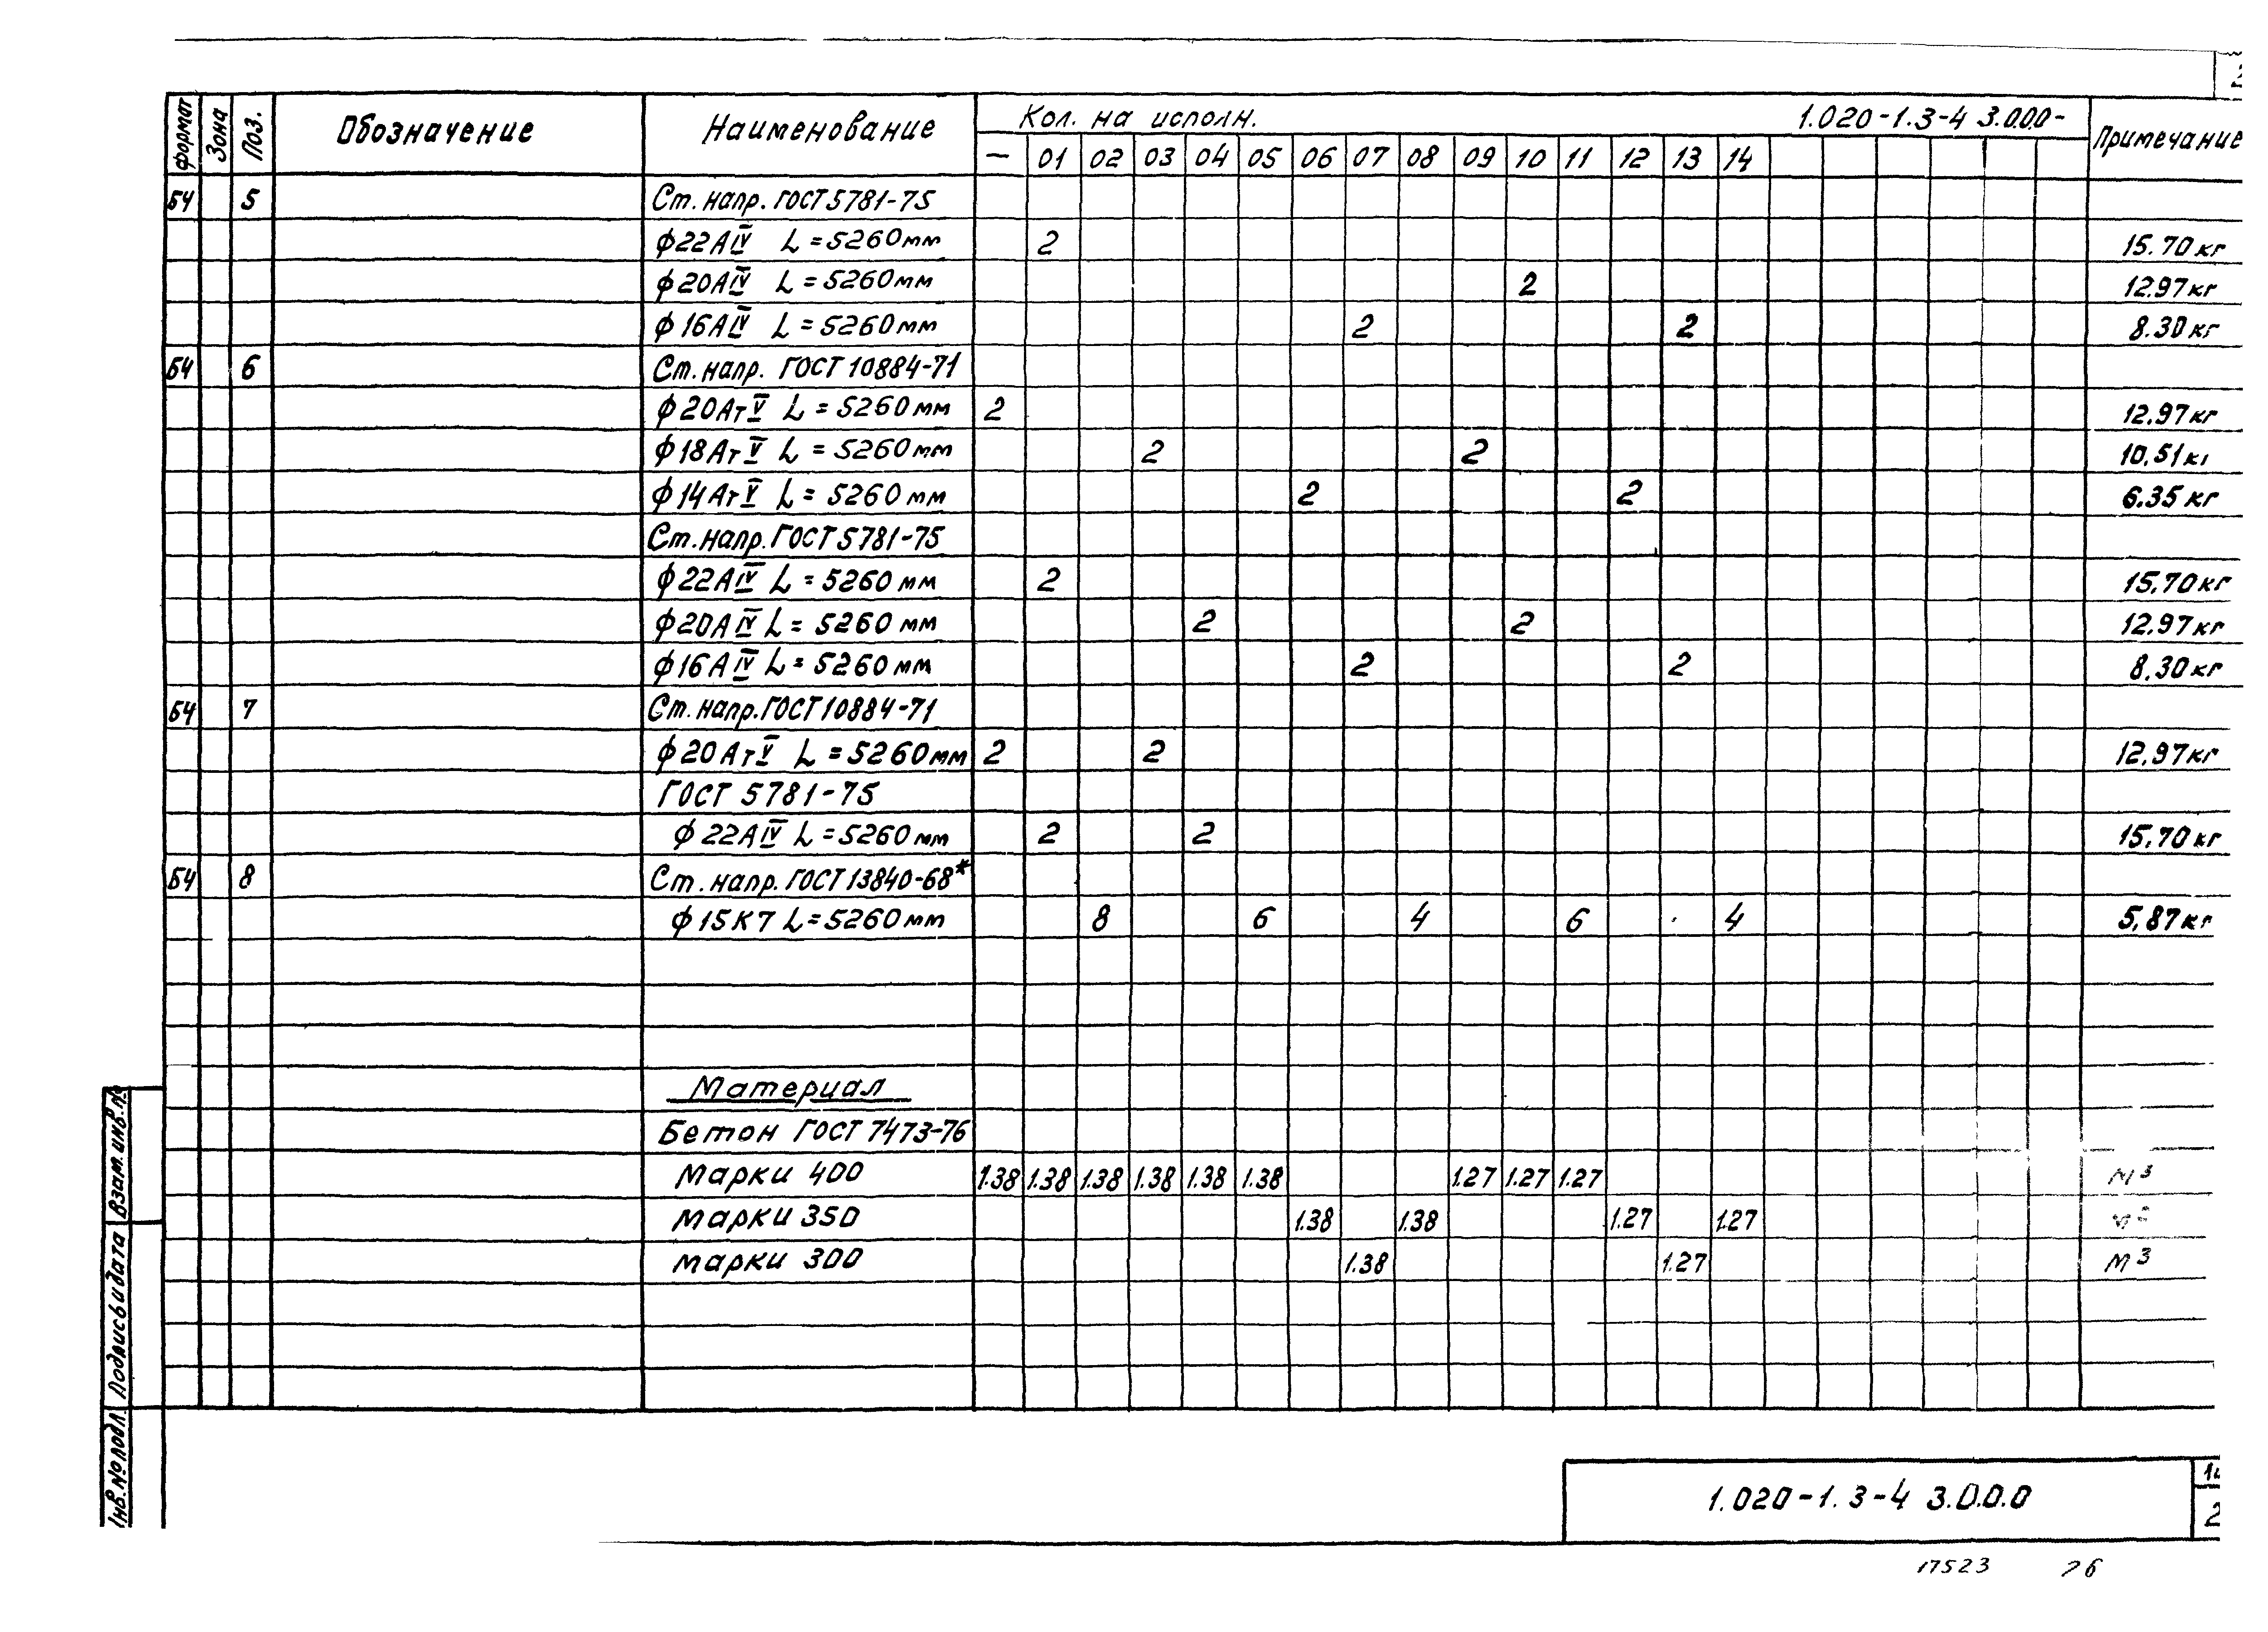 формат Зона Поз. Обозначение Наименование Кол. на исполн. 1.020-1.3-4 3.0.0.0- Примечание
— 01 02 03 04 05 06 07 08 09 10 11 12 13 14
БЧ 5 Ст. напр. ГОСТ 5781-75
ф22АIV L=5260мм 2 15.70кг
ф20АIV L=5260мм 2 12.97кг
ф16АIV L=5260мм 2 2 8.30кг
БЧ 6 Ст. напр. ГОСТ 10884-71
ф20АтV L=5260мм 2 12.97кг
ф18АтV L=5260мм 2 2 10.51кг
ф14АтV L=5260мм 2 2 6.35кг
Ст. напр. ГОСТ 5781-75
ф22АIV L=5260мм 2 15.70кг
ф20АIV L=5260мм 2 2 12.97кг
ф16АIV L=5260мм 2 2 8.30кг
БЧ 7 Ст. напр. ГОСТ 10884-71
ф20АтV L=5260мм 2 2 12.97кг
ГОСТ 5781-75
ф22АIV L=5260мм 2 2 15.70кг
БЧ 8 Ст. напр. ГОСТ 13840-68*
ф15К7 L=5260мм 8 6 4 6 4 5,87кг
Материал
Бетон ГОСТ 7473-76
марки 400 1.38 1.38 1.38 1.38 1.38 1.38 1.27 1.27 1.27 м³
марки 350 1.38 1.38 1.27 1.27
марки 300 1.38 1.27 м³
Инв.№подл. Подпись и дата Взам.инв.№
1.020-1.3-4 3.0.0.0
2
17523 26